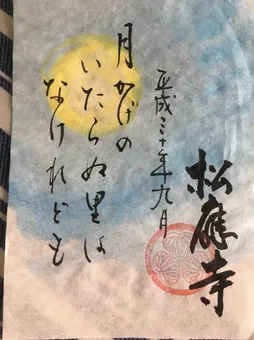 松應寺
平成三十年九月
月かげの
いたらぬ里は
なけれども